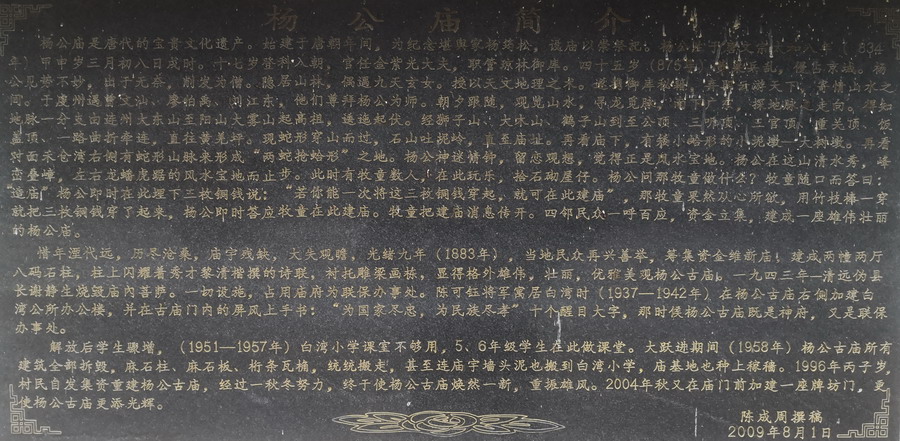 杨公庙简介
杨公庙是唐代的宝贵文化遗产。始建于唐朝年间，为纪念堪舆家杨筠松，设庙以崇祭祀。杨公生于 八年（834
年）甲申岁三月初八日戌时。十七岁登科入朝，官任金紫光大夫，职管琼林御库。四十五岁（ 乱，得出京城。杨
公见势不妙，出于无奈，削发为僧。隐居山林，偶遇九天玄女，授以天文地理之术。 游天下，寄情山水之
间。于虔州遇曾文汕、廖伯禹、刘江东，他们尊拜杨公为师。朝夕跟随，观览山水，寻龙觅脉， 探地脉之走向。得知
地脉一分支由连州大东山至阳山大雾山起高祖，逶迤起伏。经狮子山、大咪山、鹤子山到至公顶、三净顶、三官顶、重关顶、饭
盖顶、一路曲折牵连，直往黄芜坪。现蛇形穿山而过，石山吐泥岭，直至庙址。再看庙下，有条小蛤形的小泥墩一大码墩。再看
对面禾仓湾右侧有蛇形山脉来形成“两蛇抢蛤形”之地。杨公神迷情钟，留恋观想，觉得正是风水宝地。杨公在这山清水秀，峰
峦叠峰，左右龙蟠虎踞的风水宝地而止步。此时有牧童数人，在此玩乐，拾石砌屋仔。杨公问那牧童做什么？牧童随口而答曰：
“造庙”杨公即时在此埋下三枚铜钱说：“若你能一次将这三枚铜钱穿起，就可在此建庙”，那牧童果然从心所欲，用竹枝棒一穿
就把三枚铜钱穿了起来，杨公即时答应牧童在此建庙。牧童把建庙消息传开。四邻民众一呼百应，资金立集，建成一座雄伟壮丽
的杨公庙。
惜年湮代远，历尽沧桑，庙宇残缺，大失观瞻，光绪九年（1883年），当地民众再兴善举，筹集资金维新庙，建成两幢两厅
八码石柱，柱上闪耀着秀才黎清楷撰的诗联，衬托雕梁画栋，显得格外雄伟，壮丽，优雅美观杨公古庙，一九四三年一清远伪县
长谢静生烧毁庙内菩萨。一切设施，占用庙府为联保办事处。陈可钰将军寓居白湾时（1937—1942年）在杨公古庙右侧加建白
湾公所办公楼，并在古庙门内的屏风上手书：“为国家尽忠，为民族尽孝”十个醒目大字，那时侯杨公古庙既是神府，又是联保
办事处。
解放后学生骤增，（1951—1957年）白湾小学课室不够用，5、6年级学生在此做课堂。大跃进期间（1958年）杨公古庙所有
建筑全部折毁，麻石柱、麻石板、桁条瓦桶，统统搬走，甚至连庙宇墙头泥也搬到白湾小学，庙基地也种上稼穑。1996年丙子岁，
村民自发集资重建杨公古庙，经过一秋冬努力，终于使杨公古庙焕然一新，重振雄风。2004年秋又在庙门前加建一座牌坊门，更
使杨公古庙更添光辉。
陈成周撰稿
2009年8月1日